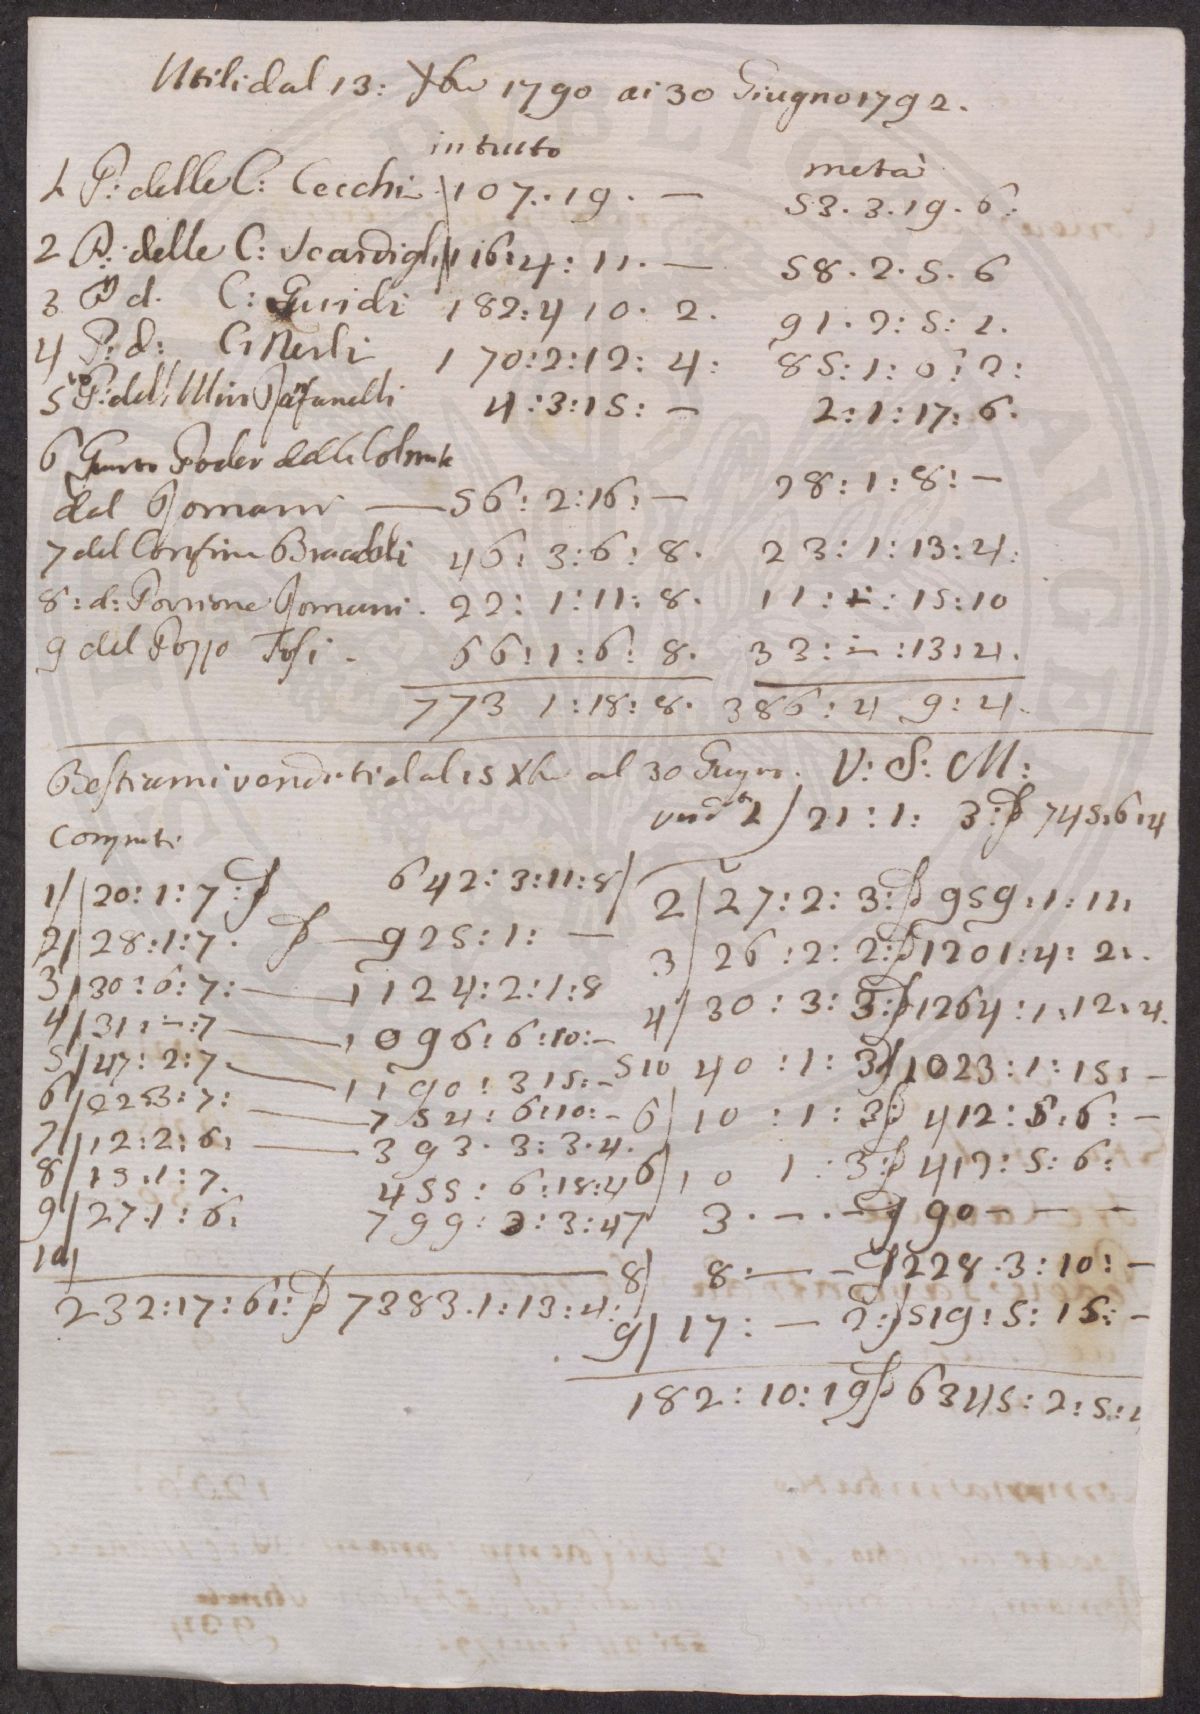 Utili dal 13: Xbre 1790 ai 30 Giugno 1792.
in tutto metà
1 P: delle C: Cecchi 107.. 19. — 53. 3. 19. 6:
2 P. delle C: Scardigli 116: 4: 11. — 58. 2. 5. 6
3 P d. C: Guidi 182: 4 10. 2. 91. 2: 5: 1.
4 P: d: C: Nerli 170: 2: 12: 4: 85: 1: 6: 2:
5 P: dell 4: 3: 15: — 2: 1: 17: 6.
6 Poder delle
del Romani — 56: 2: 16: — 28: 1: 8: —
7 del Confine Bracali 46: 3: 6: 8. 23: 1: 13: 4:
8: d: Porrione Romani. 22: 1: 11: 8. 11: —: 15: 10
9 del Pozzo Tosi. 66: 1: 6: 8. 33: —: 13: 4.
773 1: 18: 8. 386: 4 9: 4.
Bestiami venduti dal 15 Xbre al 30 Giugno. V: S: M:
21: 1: 3: 745: 6: 4
Comprati
1/ 20: 1: 7: 642: 3: 11: 8
2/ 28: 1: 7. — 925: 1: —
3/ 30: 6: 7: — 1124: 2: 1: 8
4/ 31: —: 7 — 1096: 6: 10: —
5/ 47: 2: 7 — 1190: 3 15: —
6/ 22 3: 7: — 754: 6: 10: —
7/ 12: 2: 6: — 393. 3: 3. 4.
8/ 13. 1: 7. 455: 6: 18: 4
9/ 27. 1: 6: 799: 3: 3: 4
10/
232: 17: 61: 7383. 1: 13: 4:
2/ 27: 2: 3: 959: 1: 11:
3 26: 2: 2: 1201: 4: 2:.
4/ 30: 3: 3: 1264: 1: 12: 4.
5 40: 1: 3 1023: 1: 15: —
6/ 10: 1: 3: 412: 5: 6: —
6/ 10 1: 3: 412: 5: 6:
7 3. —. — 90 — — —
8/ 8: — — 228. 3: 10: —
9/ 17: — 2: 519: 5: 15: —
182: 10: 19 6345: 2: 5: